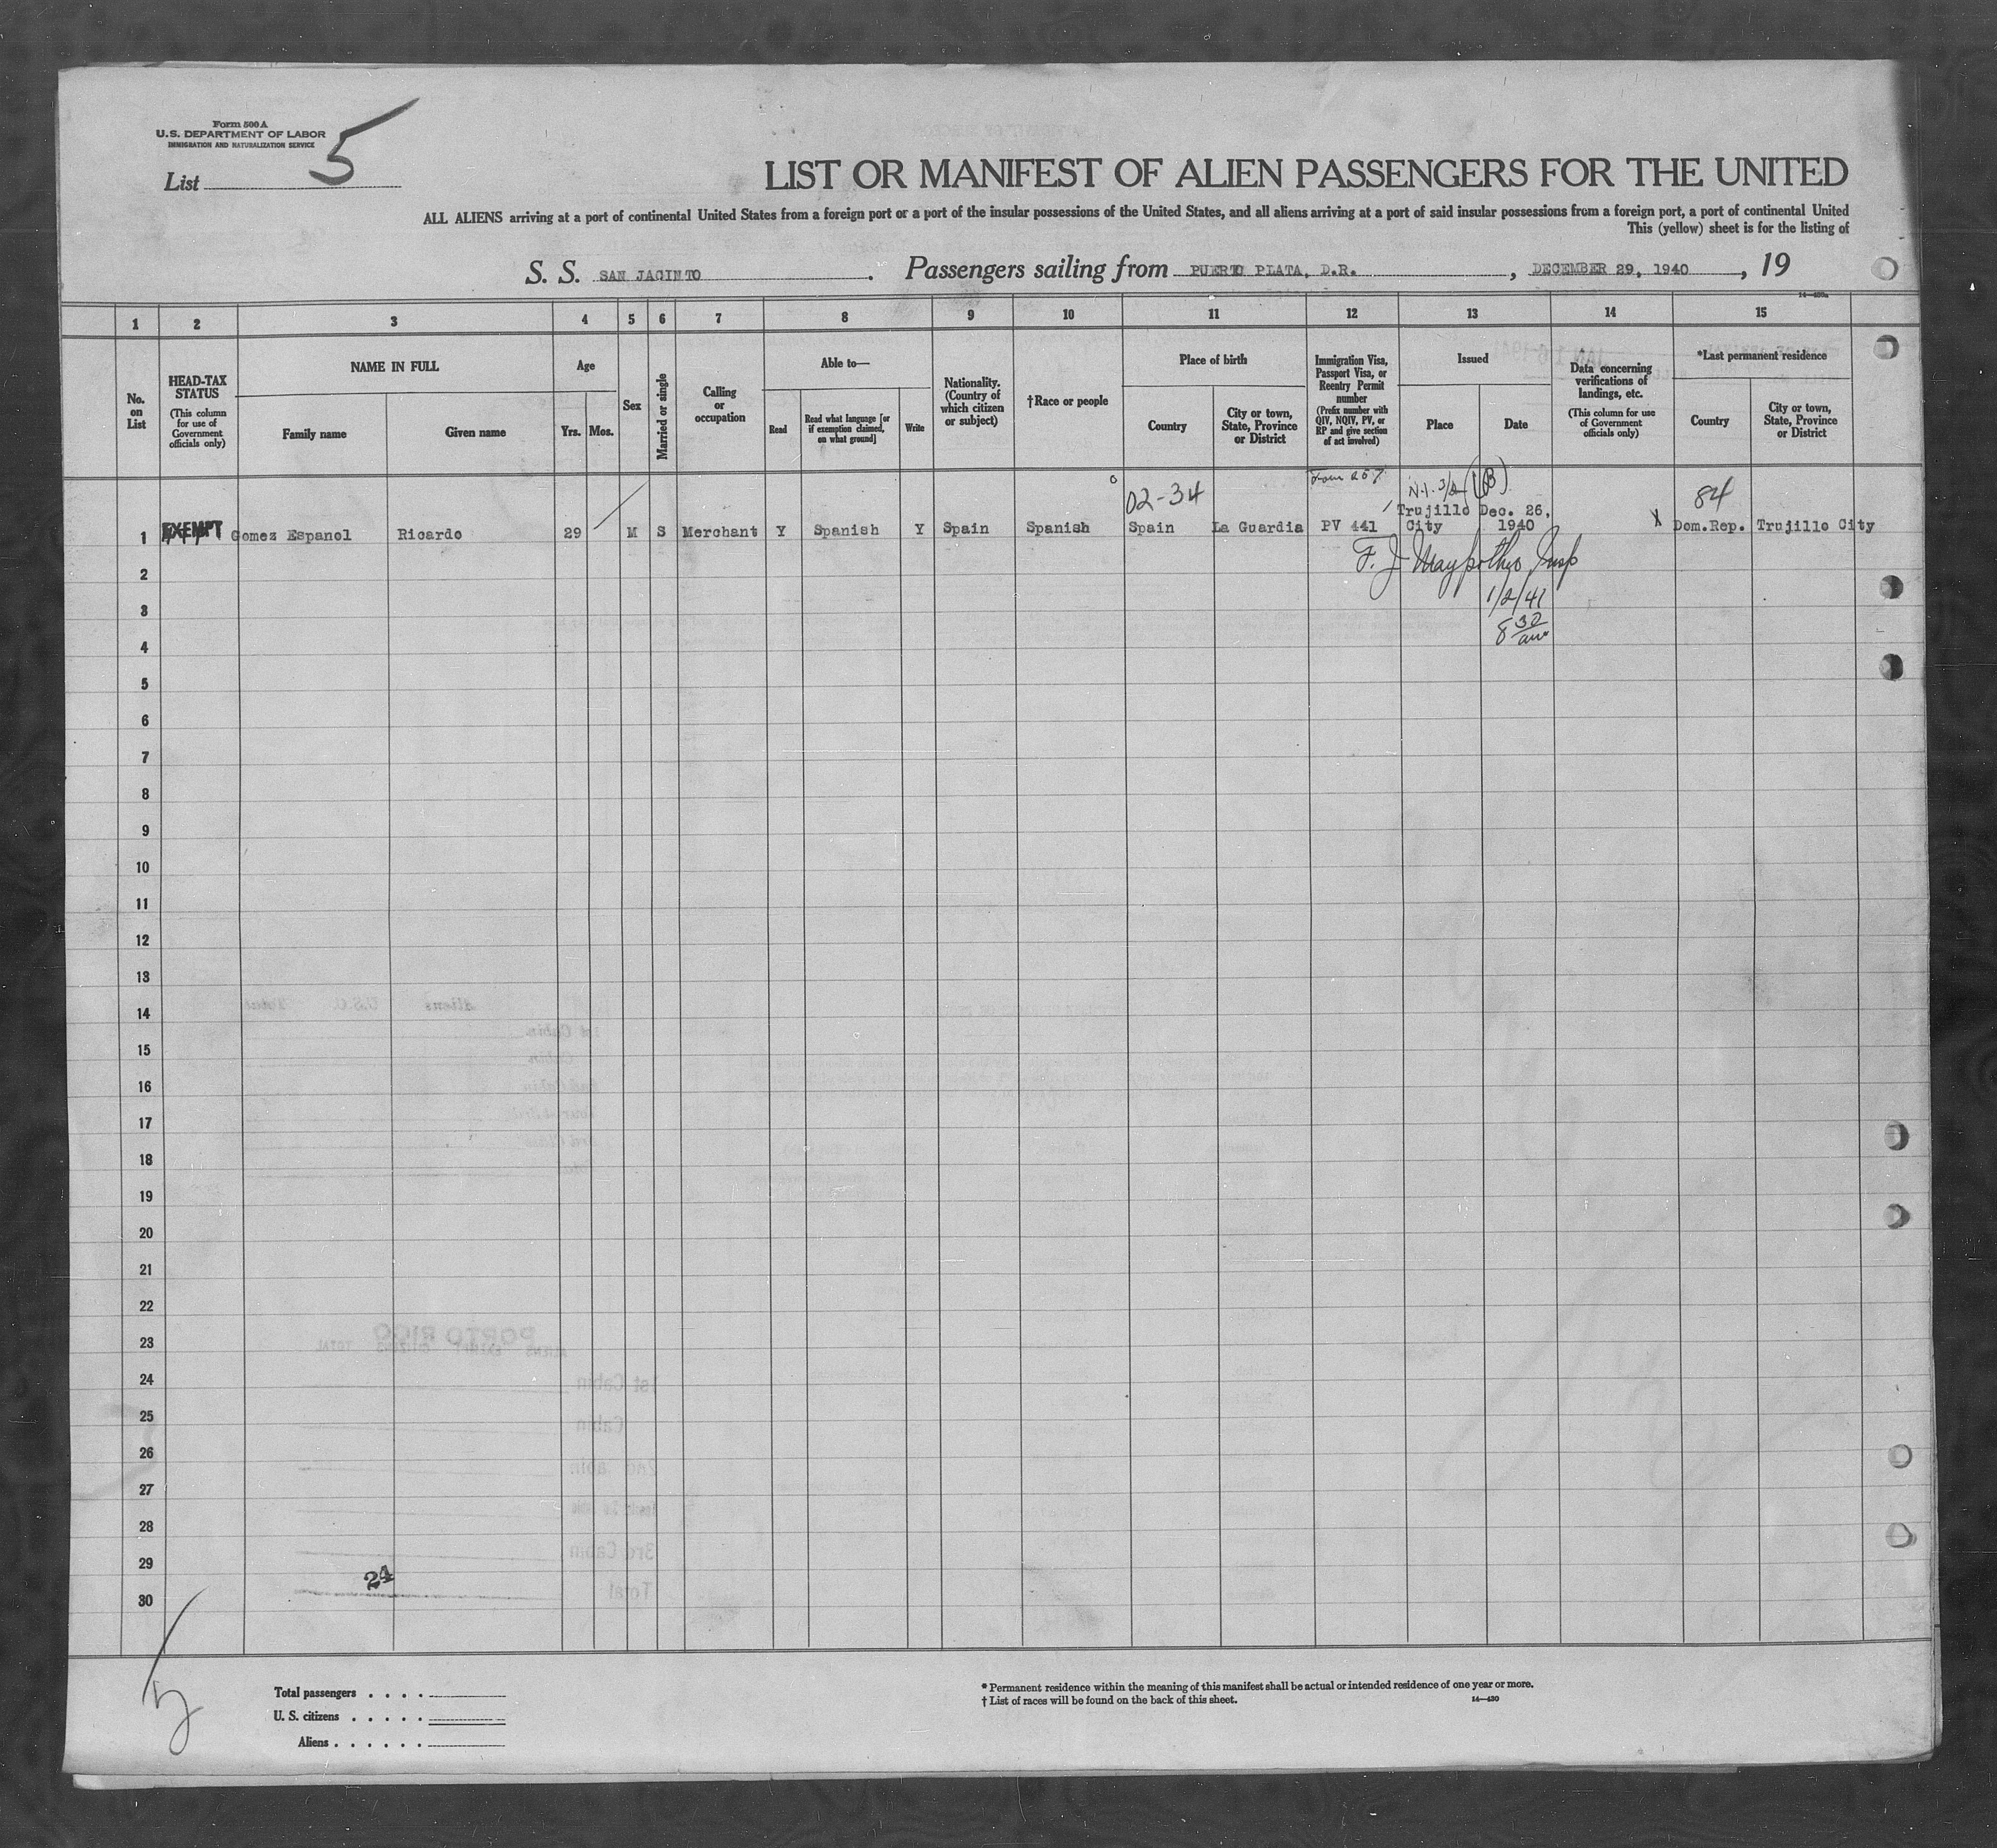 Form 500 A
U.S. DEPARTMENT OF LABOR
IMMIGRATION AND NATURALIZATION SERVICE
List 5
LIST OR MANIFEST OF ALIEN PASSENGERS FOR THE UNITED
ALL ALIENS arriving at a port of continental United States from a foreign port or a port of the insular possessions of the United States, and all aliens arriving at a port of said insular possessions from a foreign port, a port of continental United
This (yellow) sheet is for the listing of
S. S. SAN JACINTO. Passengers sailing from PUERTO PLATA, D.R., DECEMBER 29, 1940, 19
1 2 3 4 5 6 7 8 9 10 11 12 13 14 15
No. on List
HEAD-TAX STATUS
(This column for use of Government officials only)
NAME IN FULL
Family name
Given name
Age
Yrs.
Mos.
Sex
Married or single
Calling or occupation
Able to—
Read
Read what language [or if exemption claimed, on what ground]
Write
Nationality. (Country of which citizen or subject)
†Race or people
Place of birth
Country
City or town, State, Province or District
Immigration Visa, Passport Visa, or Reentry Permit number
(Prefix number with QIV, NQIV, PV, or RP and give section of act involved)
Issued
Place
Date
Data concerning verifications of landings, etc.
(This column for use of Government officials only)
*Last permanent residence
Country
City or town, State, Province or District
02-34
Form 257
84
1 EXEMPT Gomez Espanol Ricardo 29 M S Merchant Y Spanish Y Spain Spanish Spain La Guardia PV 441 Trujillo City Dec. 26, 1940 X Dom.Rep. Trujillo City
F. J.
Insp
1/2/41
8 30
am
2
3
4
5
6
7
8
9
10
11
12
13
14
15
16
17
18
19
20
21
22
23
24
25
26
27
28
29
30
24
5
Total passengers . . . .
U. S. citizens . . . . .
Aliens . . . . . .
* Permanent residence within the meaning of this manifest shall be actual or intended residence of one year or more.
† List of races will be found on the back of this sheet.
14—430